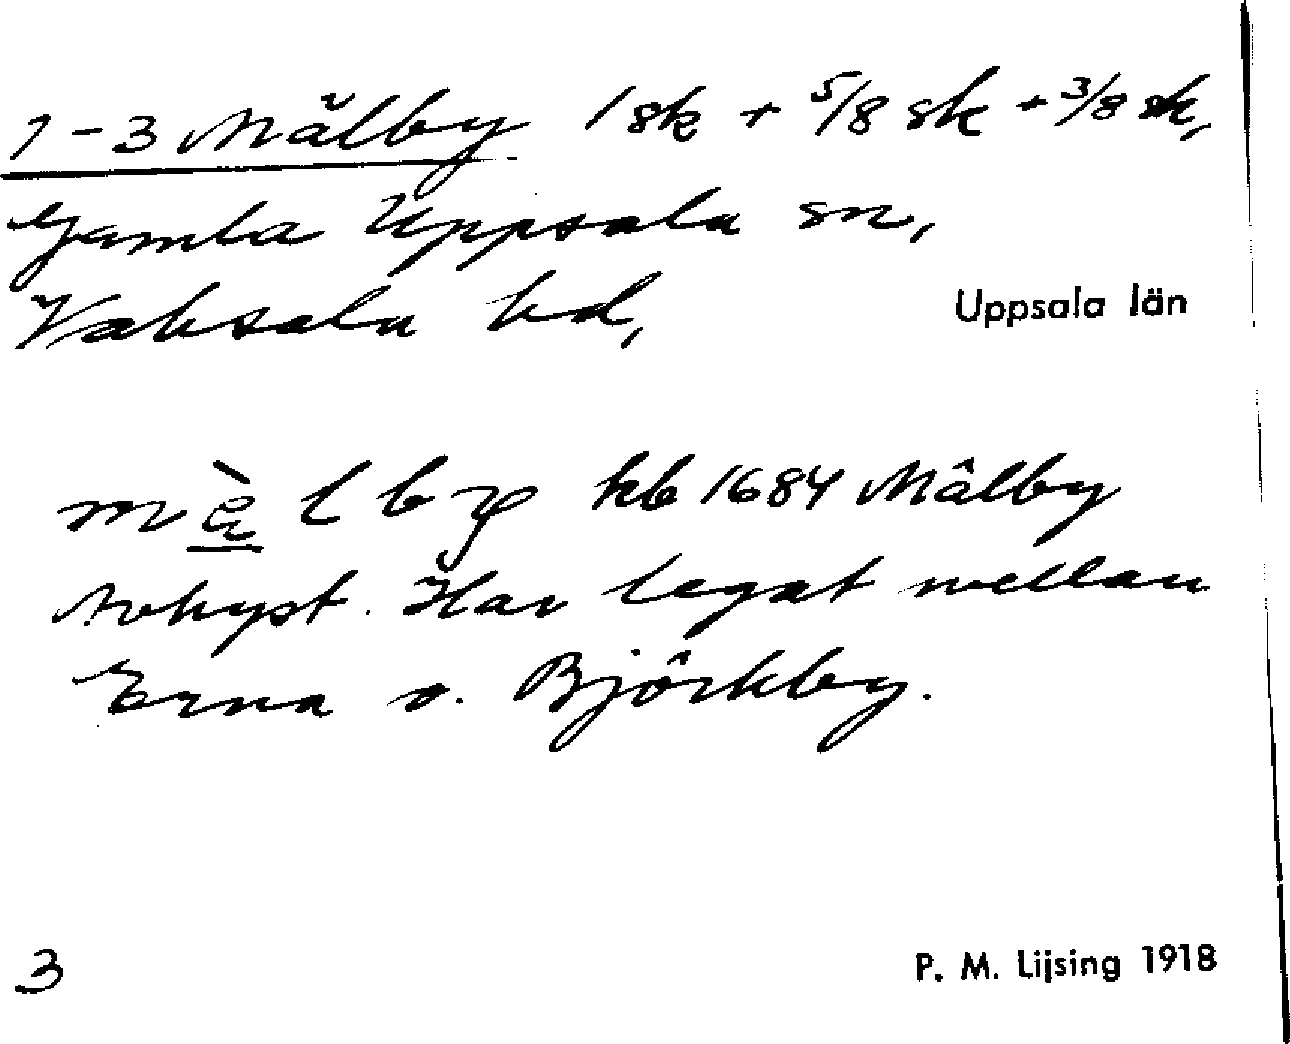 1-3 Målby 1 sk + 5/8 sk + 3/8 sk,
Gamla Uppsala sn,
Vaksala hd, Uppsala län
mè̠lby kb 1684 Målby
Avhyst. Har legat mellan
Ärna o. Björkby.
3 P. M. Lijsing 1918